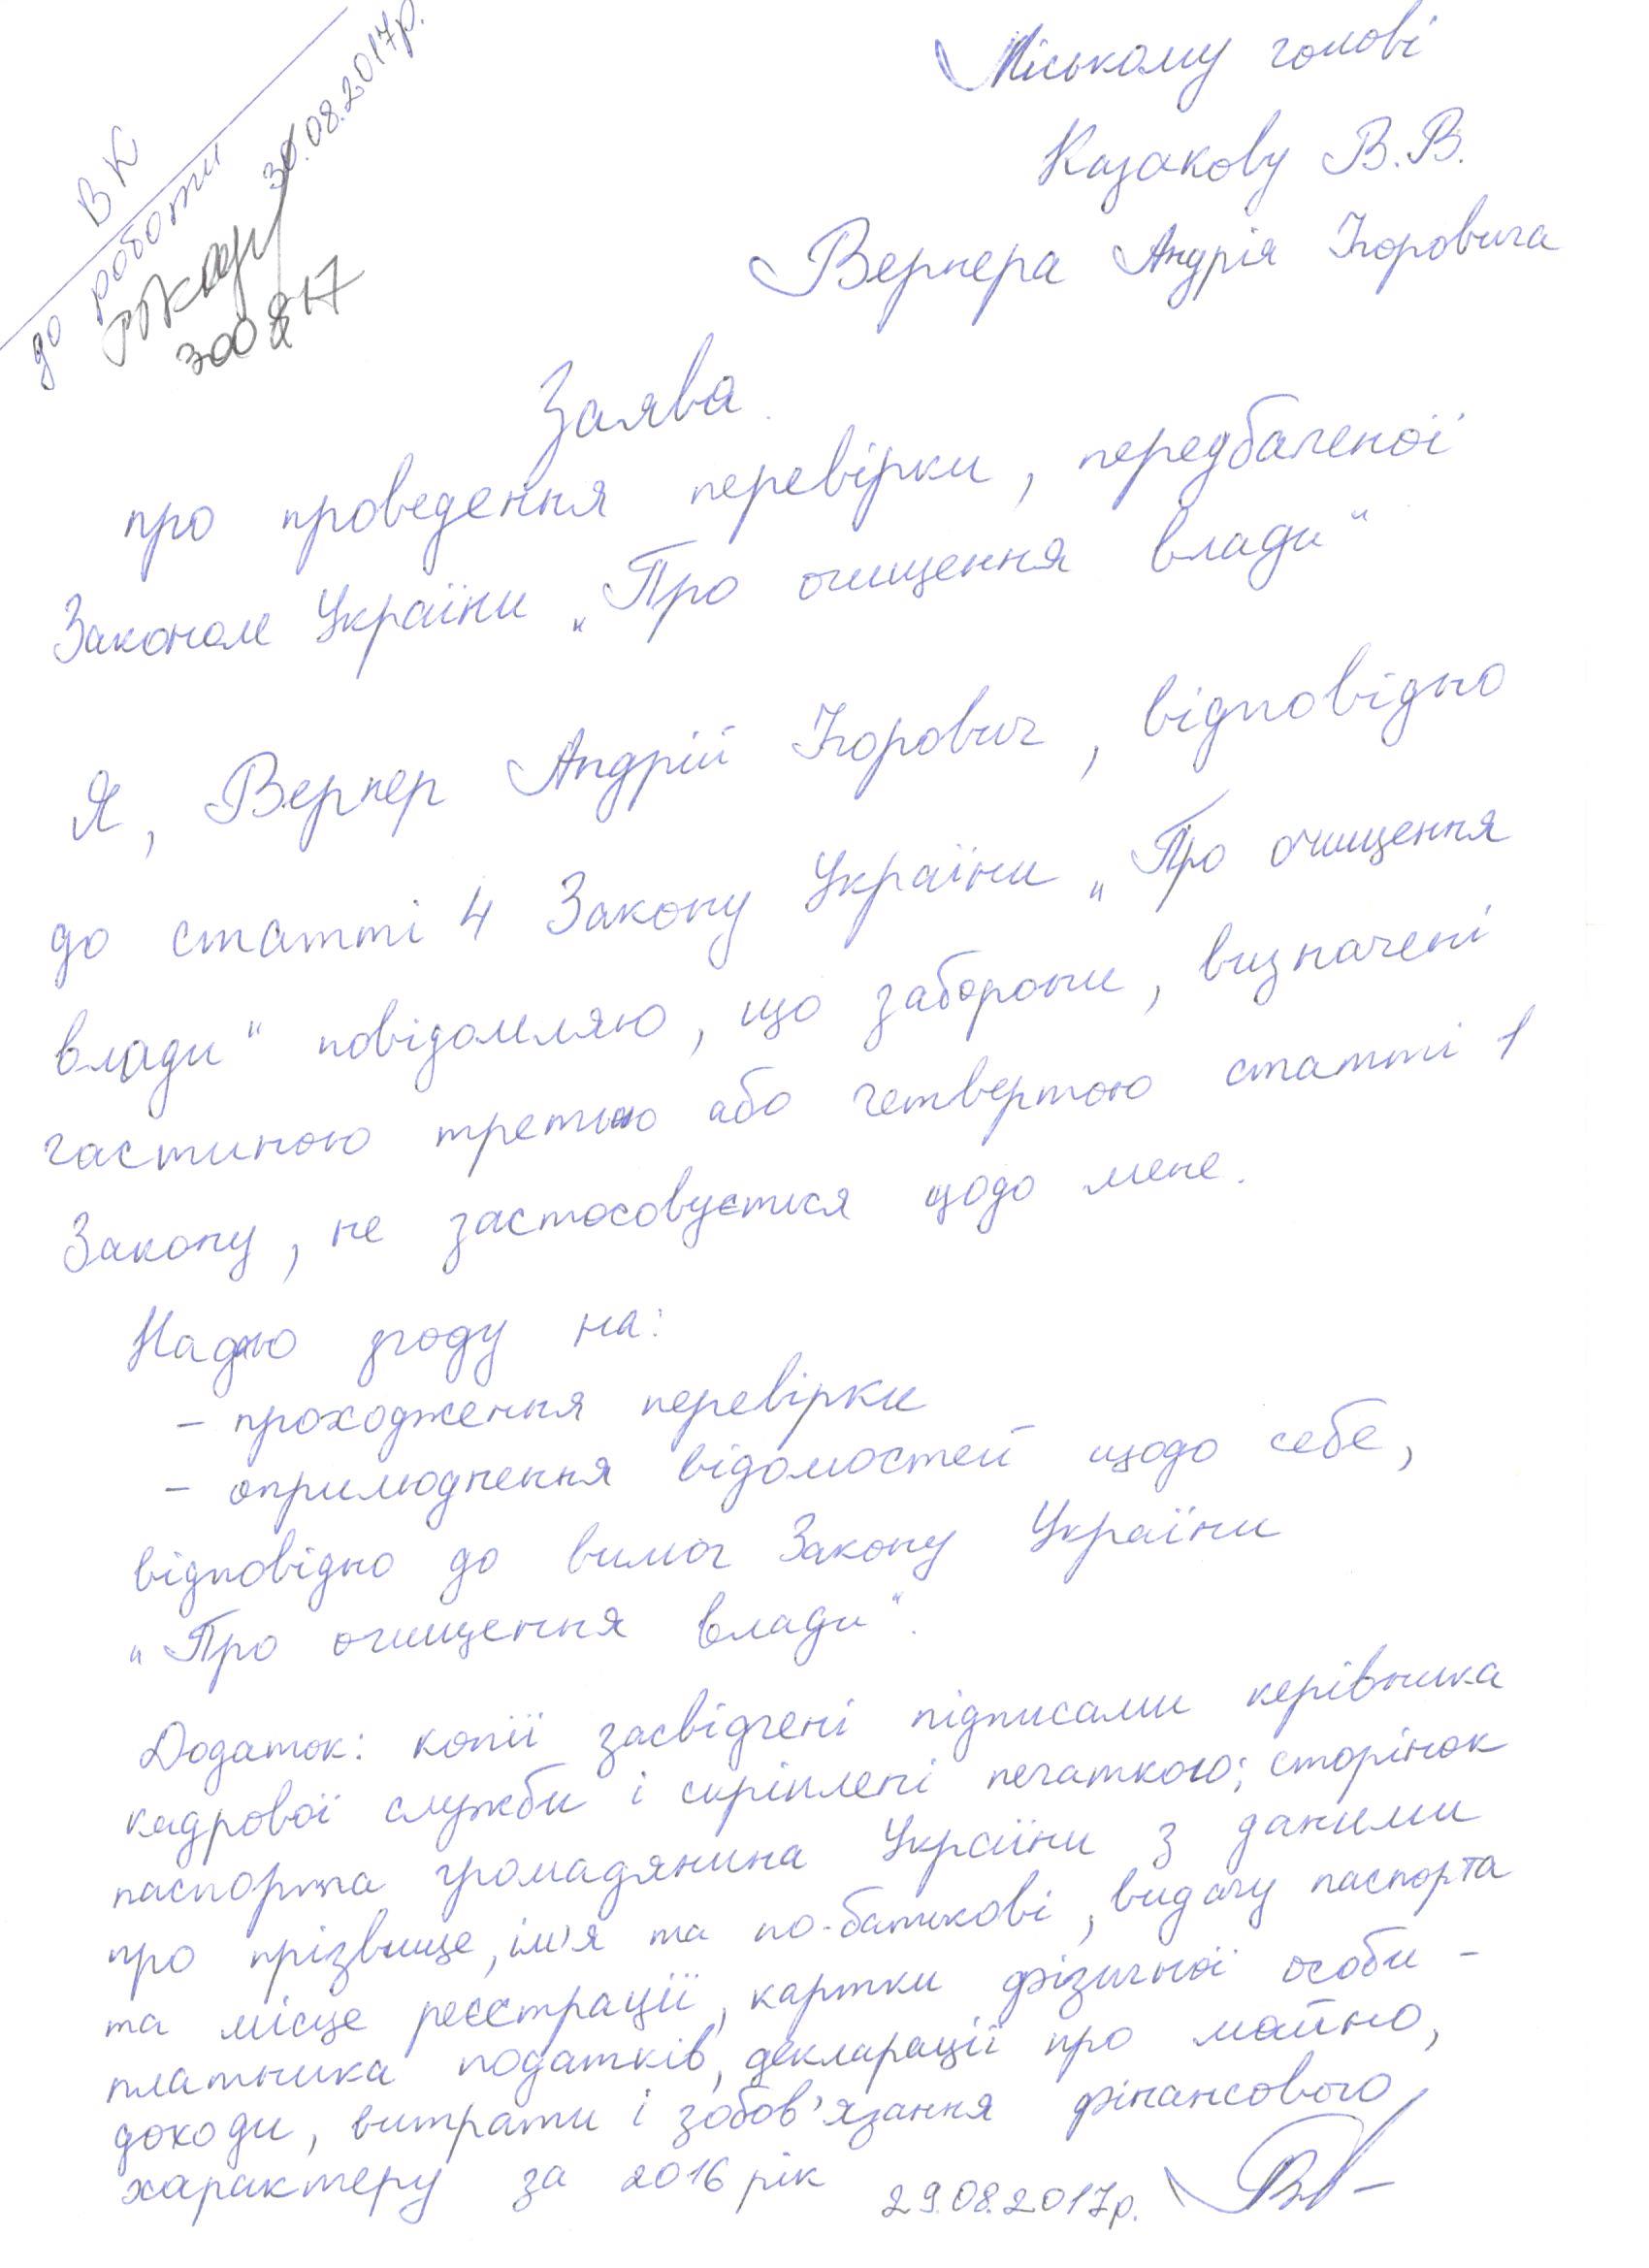 ВК
до роботи
30.08.2017р.
300817
Міському голові
Казакову В.В.
Вернера Андрія Ігоровича
Заява
про проведення перевірки, передбаченої
Законом України „Про очищення влади“
Я, Вернер Андрій Ігорович, відповідно
до статті 4 Закону України „Про очищення
влади“ повідомляю, що заборони, визначені
частиною третьою або четвертою статті 1
Закону, не застосовується щодо мене.
Надаю згоду на:
- проходження перевірки
- оприлюднення відомостей щодо себе,
відповідно до вимог Закону України
„Про очищення влади“.
Додаток: копії засвідчені підписами керівника
кадрової служби і скріплені печаткою; сторінок
паспорта громадянина України з даними
про прізвище, ім'я та по-батькові, видачу паспорта
та місце реєстрації, картки фізичної особи -
платника податків, декларації про майно,
доходи, витрати і зобов'язання фінансового
характеру за 2016 рік 29.08.2017р.